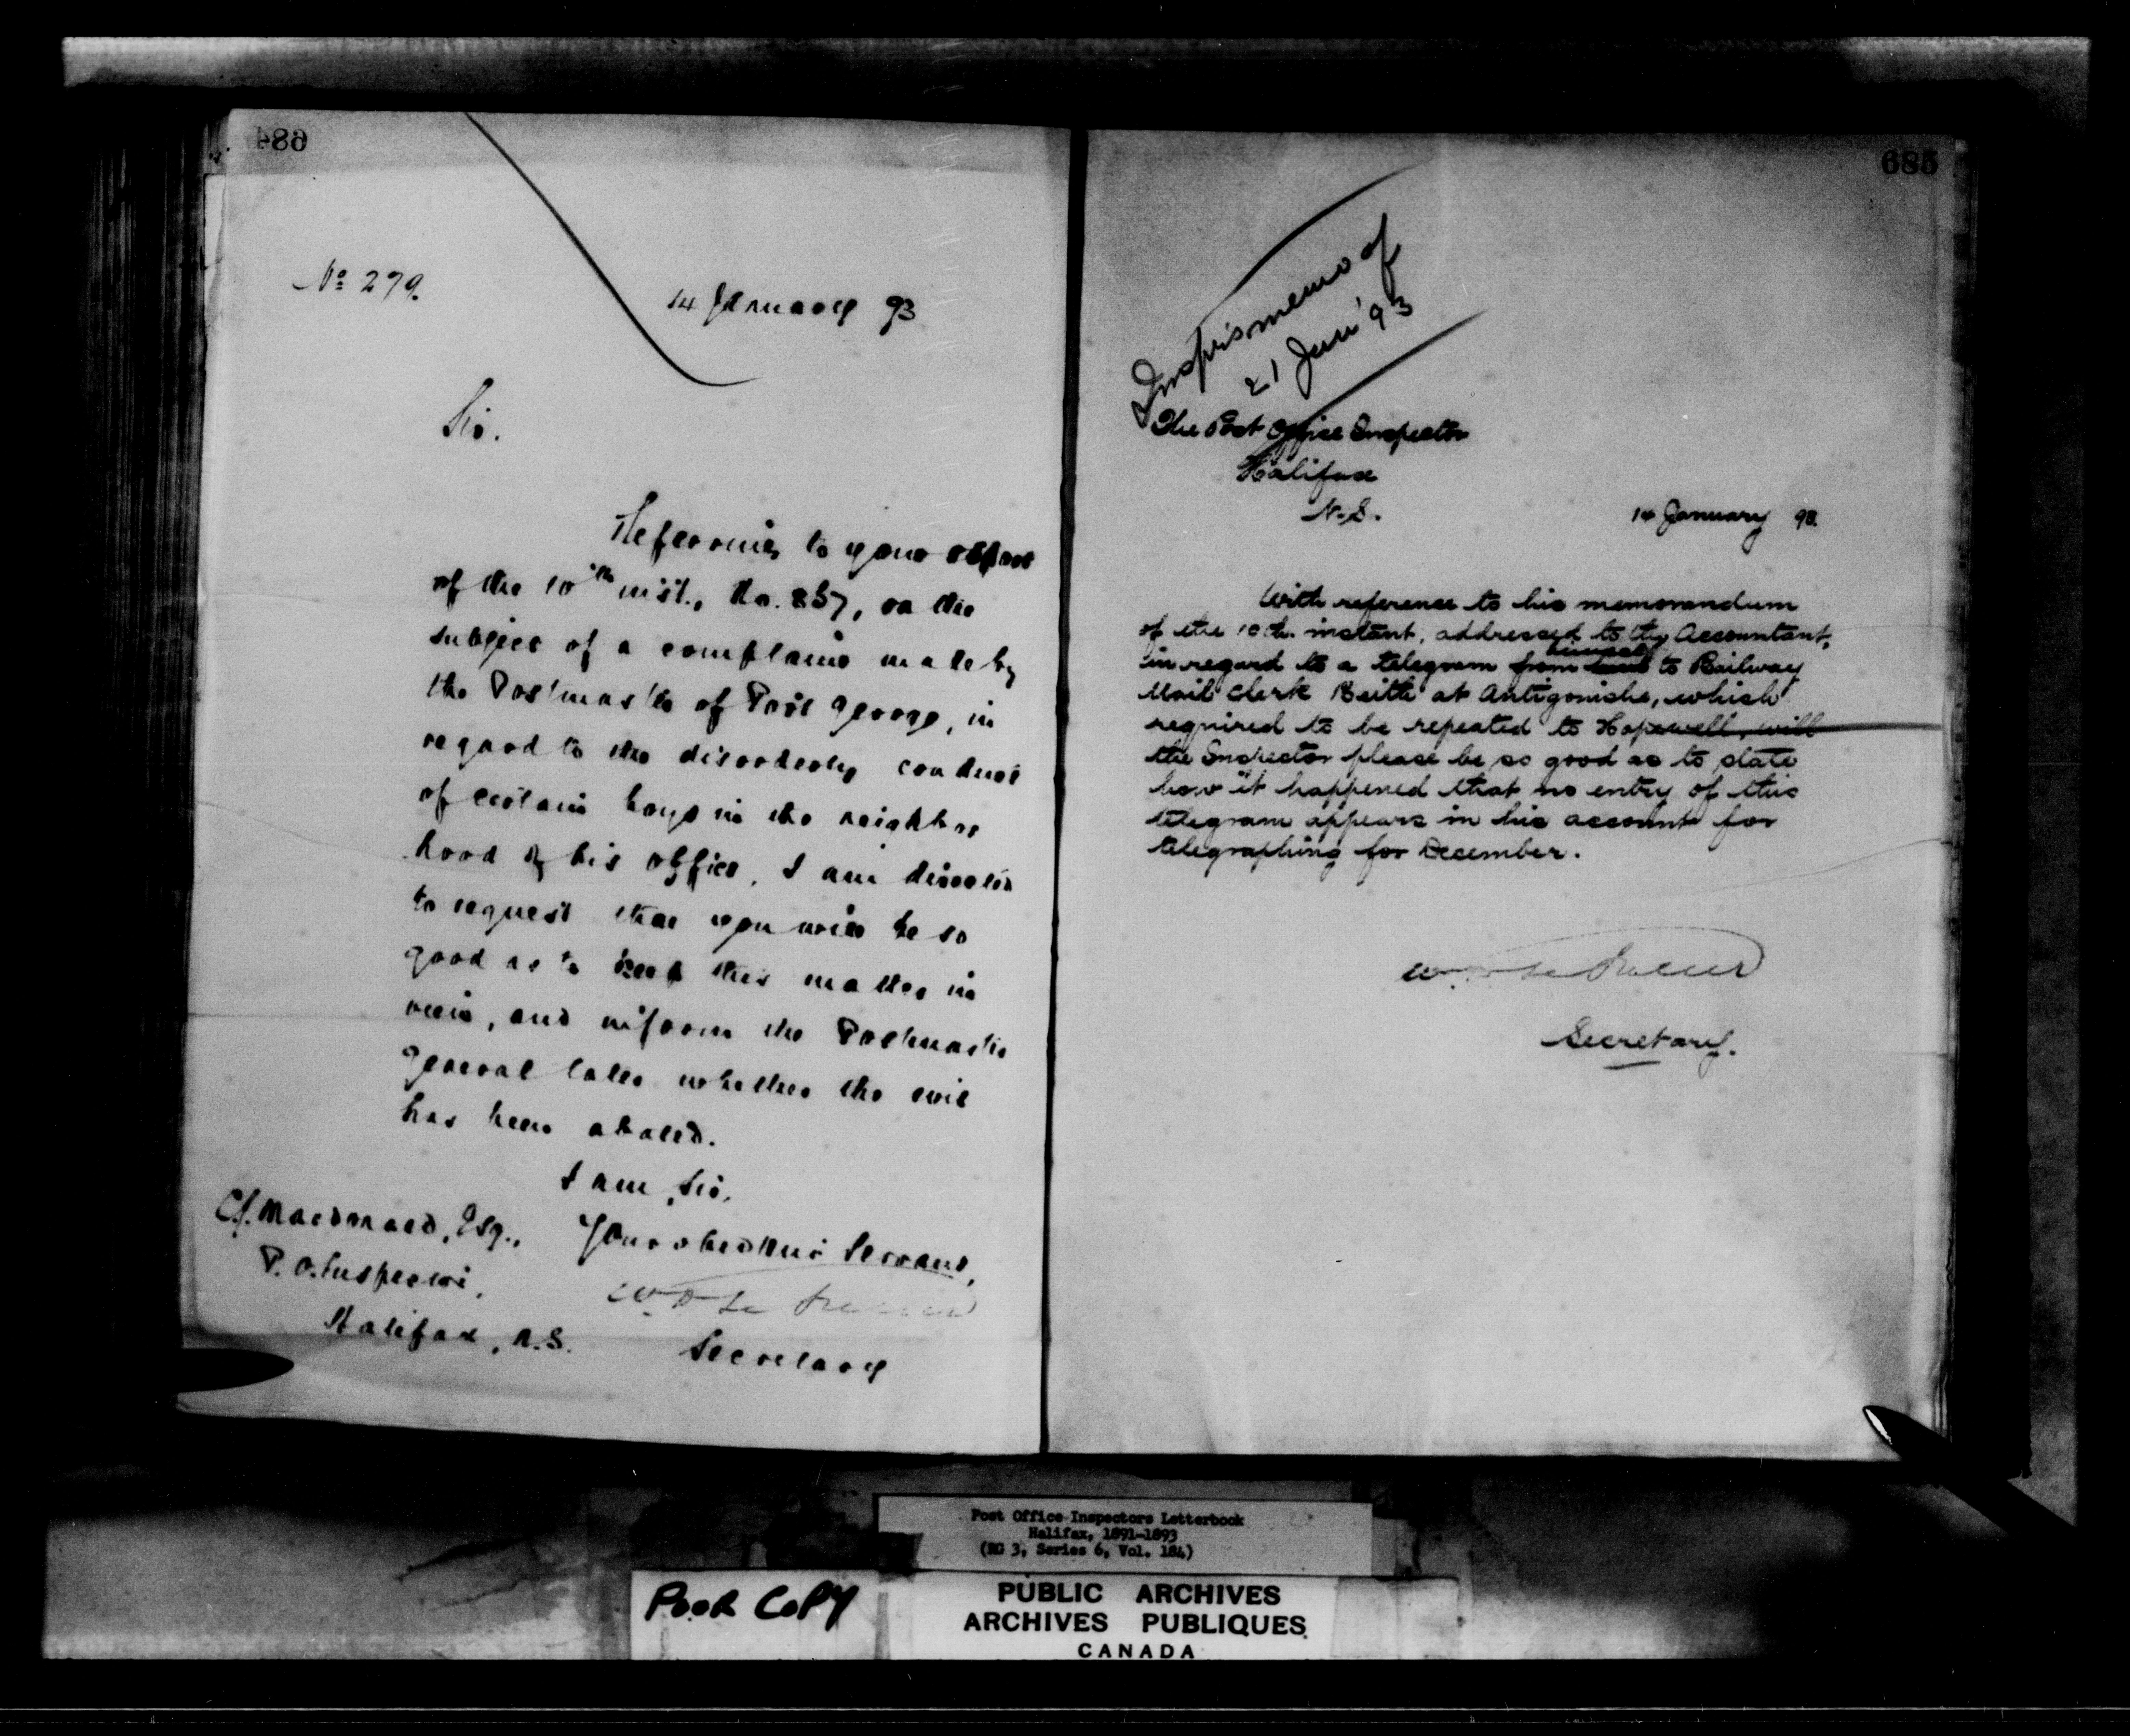 684
No 279.
14 January 93
Sir.
Referring to your report
of the 10th inst., No. 857, on the
subject of a complaint made by
the Postmaster of Port George, in
regard to the disorderly conduct
of certain boys in the neighbor
hood of his office, I am directed
to request that you will be so
good as to keep this matter in
view, and inform the Postmaster
General later whether the evil
has been abated.
I am, Sir,
Your obedient Servant,
Secretary
C.J. Macdonald, Esq.,
P.O. Inspector,
Halifax, N.S.
685
Insprs memo of
21 Jan '93
The Post Office Inspector
Halifax
N.S.
14 January 93.
With reference to his memorandum
of the 10th. instant, addressed to the Accountant,
himself
in regard to a telegram from to Railway
Mail Clerk Beith at Antigonishe, which
required to be repeated to Hopewell, will
the Inspector please be so good as to state
how it happened that no entry of this
telegram appears in his account for
telegraphing for December.
Secretary.
Post Office Inspectors Letterbook
Halifax, 1891-1893
(RG 3, Series 6, Vol. 184)
POOR COPY
PUBLIC ARCHIVES
ARCHIVES PUBLIQUES
CANADA